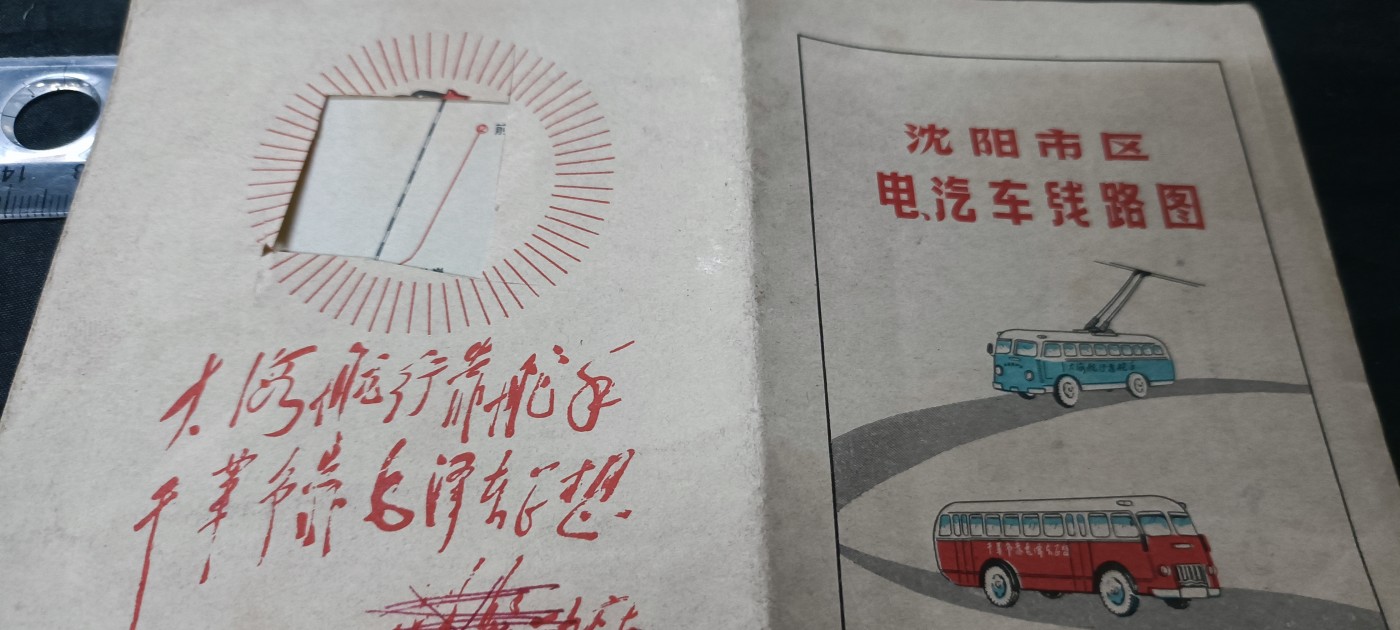 大海航行靠舵手
干革命靠毛泽东思想
沈阳市区
电、汽车线路图
大海航行靠舵手
干革命靠毛泽东思想
14